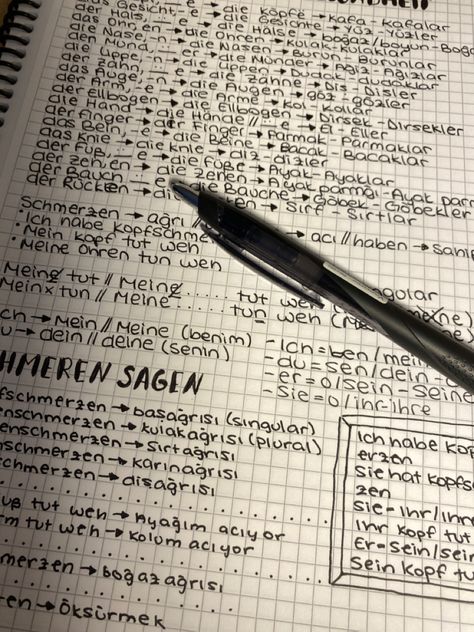 das Gesicht, -e → die Köpfe → Kafa - Kafalar
das Ohr, -en → die Hälse → boğaz/boyun - Boğa
die Nase, -n → die Ohren → Kulak - Kulaklar
der Mund, → die Nasen → Burun - Burunlar
die Lippe, n → die Münder → Ağız - Ağızlar
der Zahn, → die Lippen → Dudak - dudaklar
das Auge, n → e → die Zähne → Diş - Dişler
der Arm, → die Augen → göz - gözler
der ellbogen → e → die Arme → Kol - Kollar
die Hand → die Ellbogen → Dirsek - Dirsekler
der Finger → die Hände // e → El - Eller
das Bein, -e → der Finger → Parmak - Parmaklar
das Knie → die Beine → Bacak - Bacaklar
der Fuß, → die Knie → diz - dizler
der zehren → e → die Füße → Ayak - Ayaklar
der Bauch → die zehen → Ayak parmağı - Ayak parm
der Rücken → die Bäuche → Göbek - Göbekler
en → Sırt - Sırtlar
Schmerzen → ağrı // → acı // haben → sahip
• Ich habe Kopfschme
• Mein Kopf tut weh
• Meine Ohren tun weh
Meine tut // Meine ...... tut weh singular
Mein tun // Meine ...... tun weh (ne)
ch → Mein / Meine (benim)
u → dein // deine (senin)
- Ich = ben / mein
- du = sen / dein - d
- er = o / sein - seine
- Sie = o / ihr - ihre
HMEREN SAGEN
fschmerzen → başağrısı (singular)
enschmerzen → kulakağrısı (plural)
enschmerzen → sırtağrısı
hschmerzen → karınağrısı
schmerzen → dişağrısı
uß tut weh → Ayağım acıyor
rm tut weh → Kolum acıyor
merzen → boğaz ağrısı
en → Öksürmek
Ich habe Kop
erzen
Sie hat Kopfs
zen
Sie - Ihr / Ihr
Ihr Kopf tut
Er - Sein / sei
Sein Kopf tu